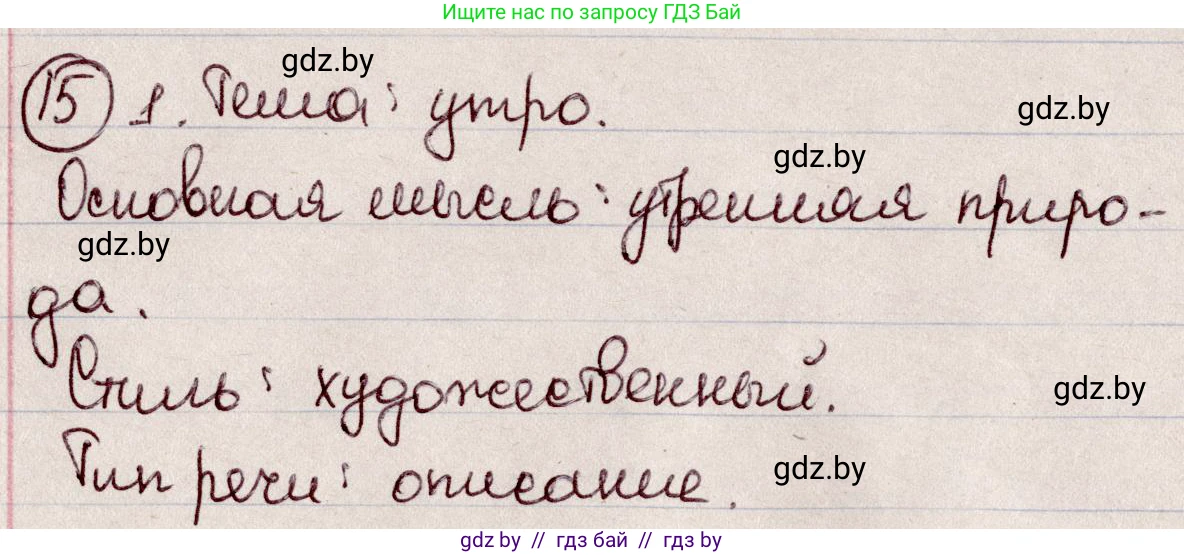 Ищите нас по запросу ГДЗ Бай
gdz.by
15 1. Тема: утро.
gdz.by
gdz.by
Основная мысль: утренняя приро-
gdz.by
да.
Стиль: художественный.
gdz.by
Тип речи: описание.
gdz.by
gdz.by // гдз бай // гдз by